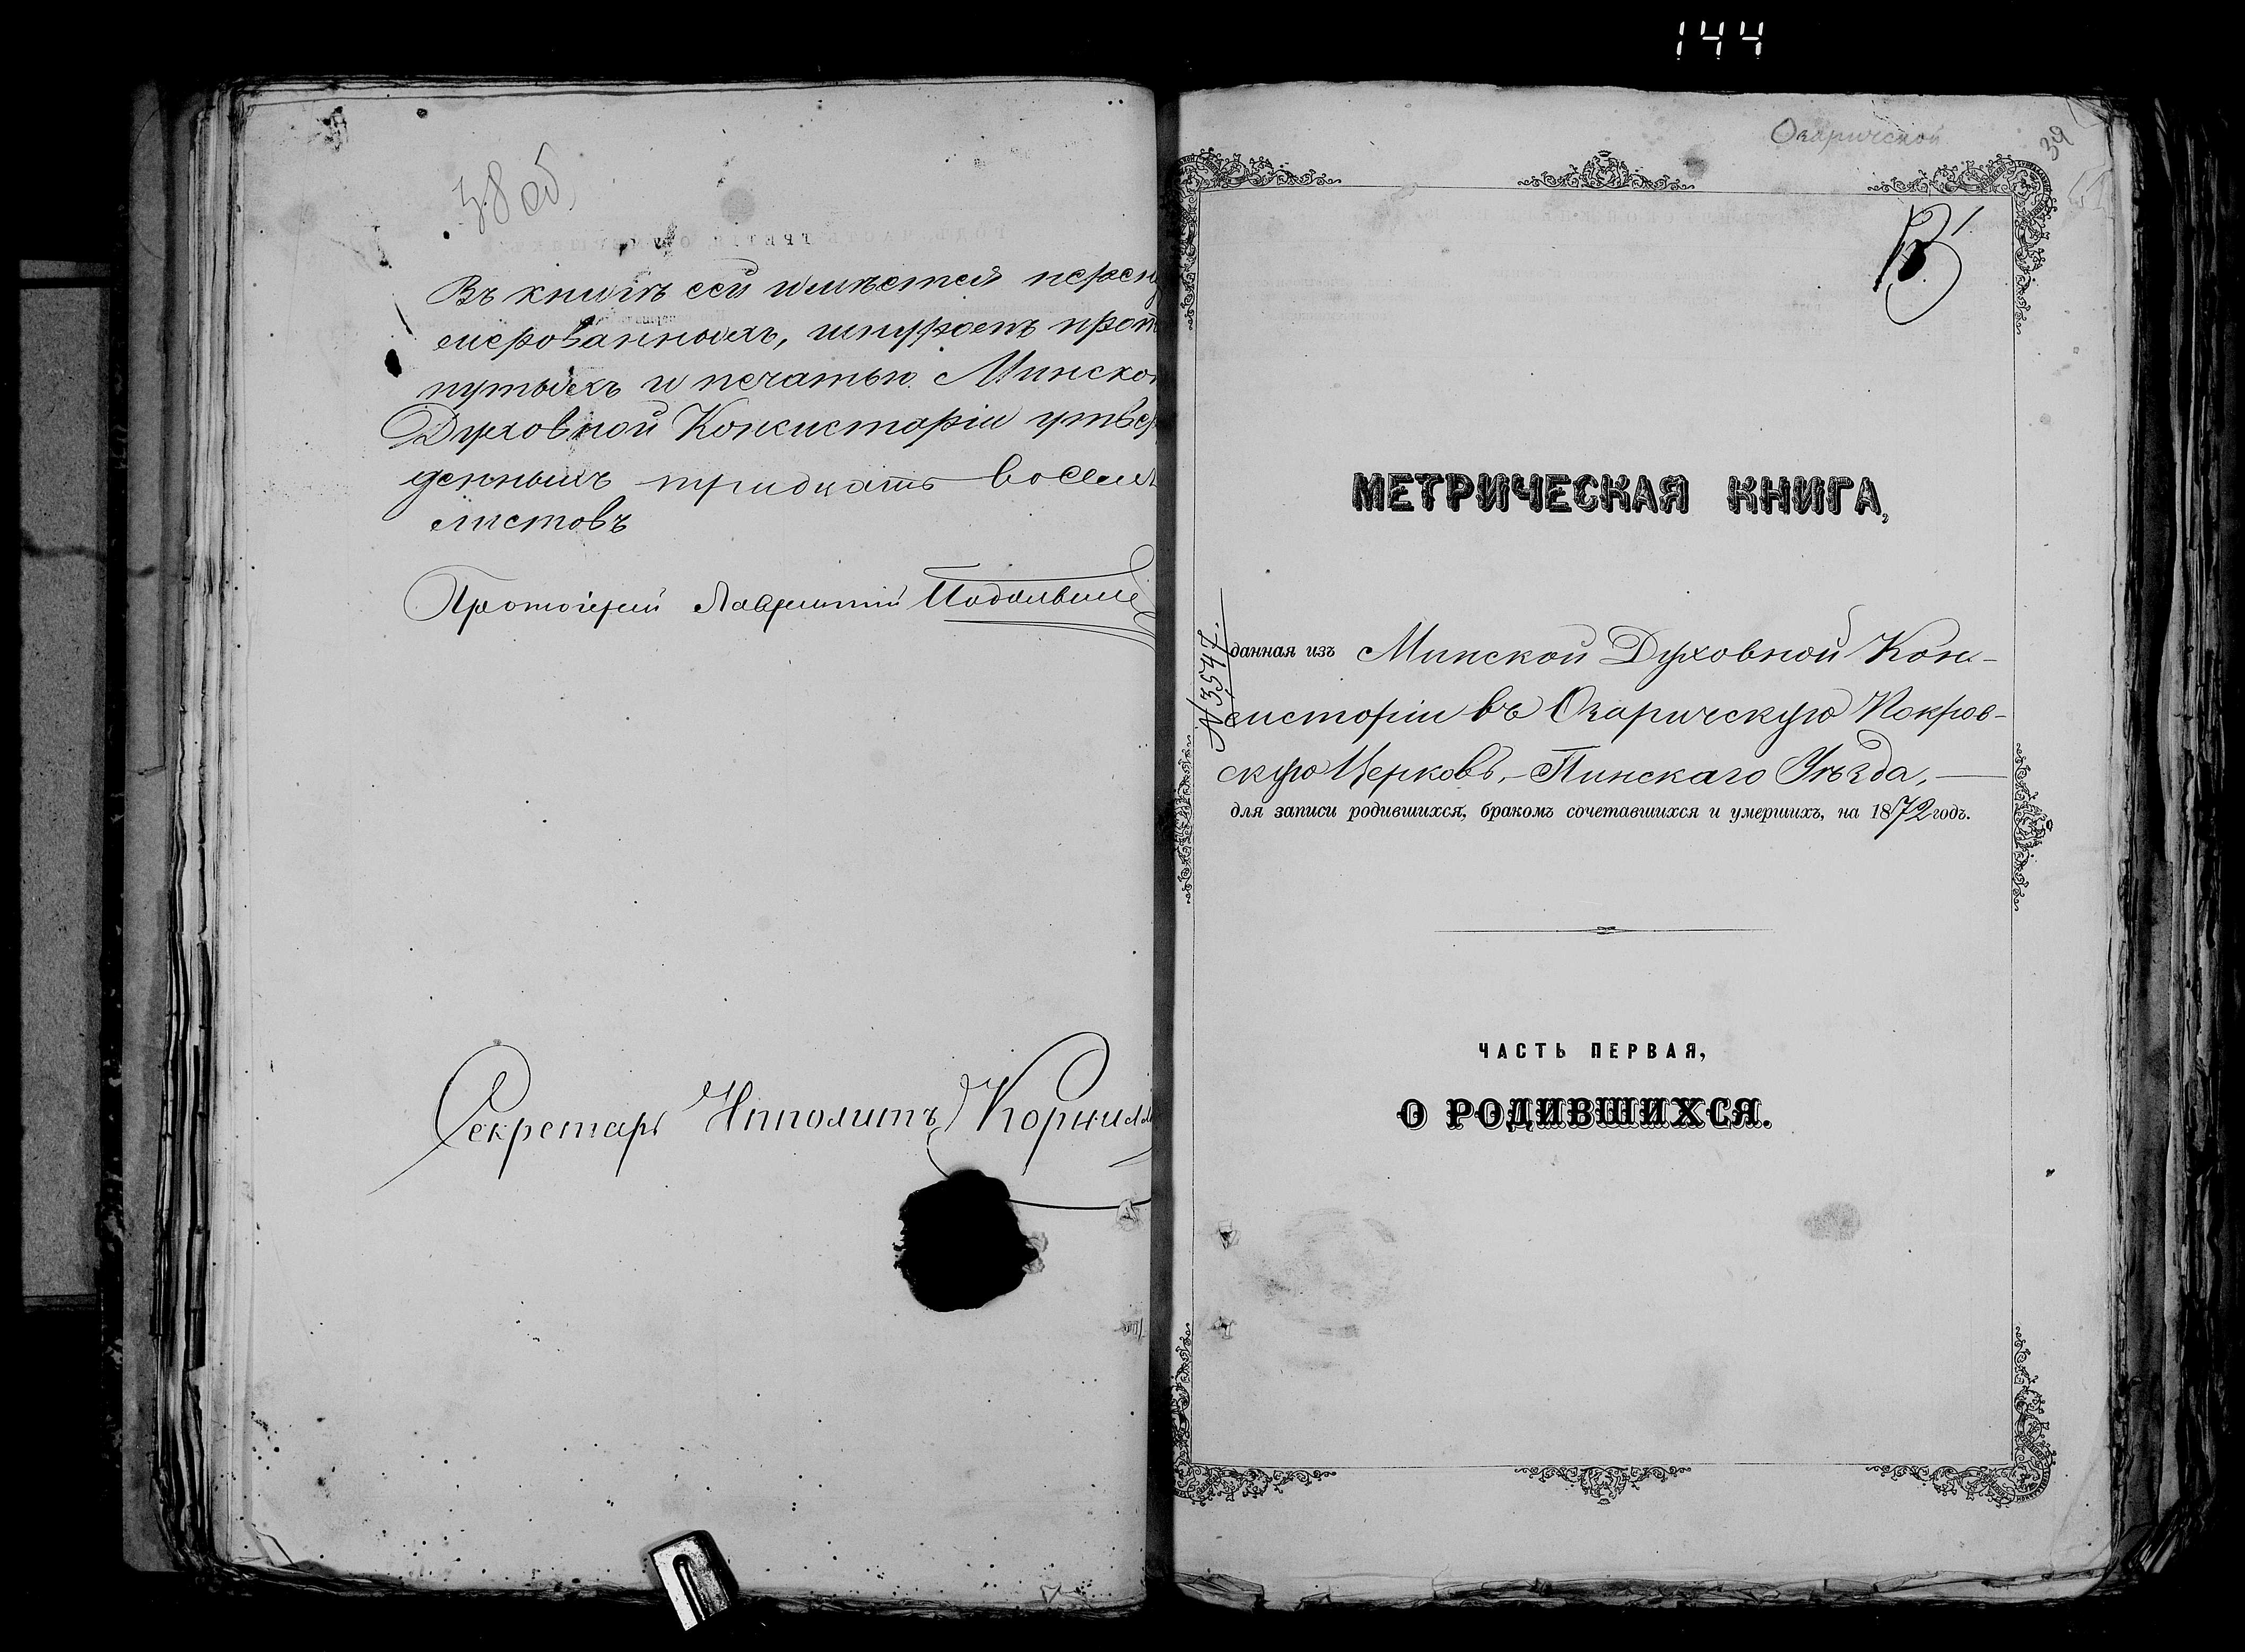 144
38 об
Въ книгѣ сей имѣется перен
мерованныхъ, шнуромъ прот
путыхъ и печатью Минской
Духовной Консисторіи утвер
денныхъ тридцать восемь
листовъ
Протоіерей Лаврентій
Секретарь Ипполитъ Корнил
Озаричской
39
МЕТРИЧЕСКАЯ КНИГА,
№ 3547.
данная изъ Минской Духовной Кон-
систоріи въ Озаричскую Покров-
скую Церковь, – Пинскаго Уѣзда, —
для записи родившихся, бракомъ сочетавшихся и умершихъ, на 1872 годъ.
ЧАСТЬ ПЕРВАЯ,
О РОДИВШИХСЯ.